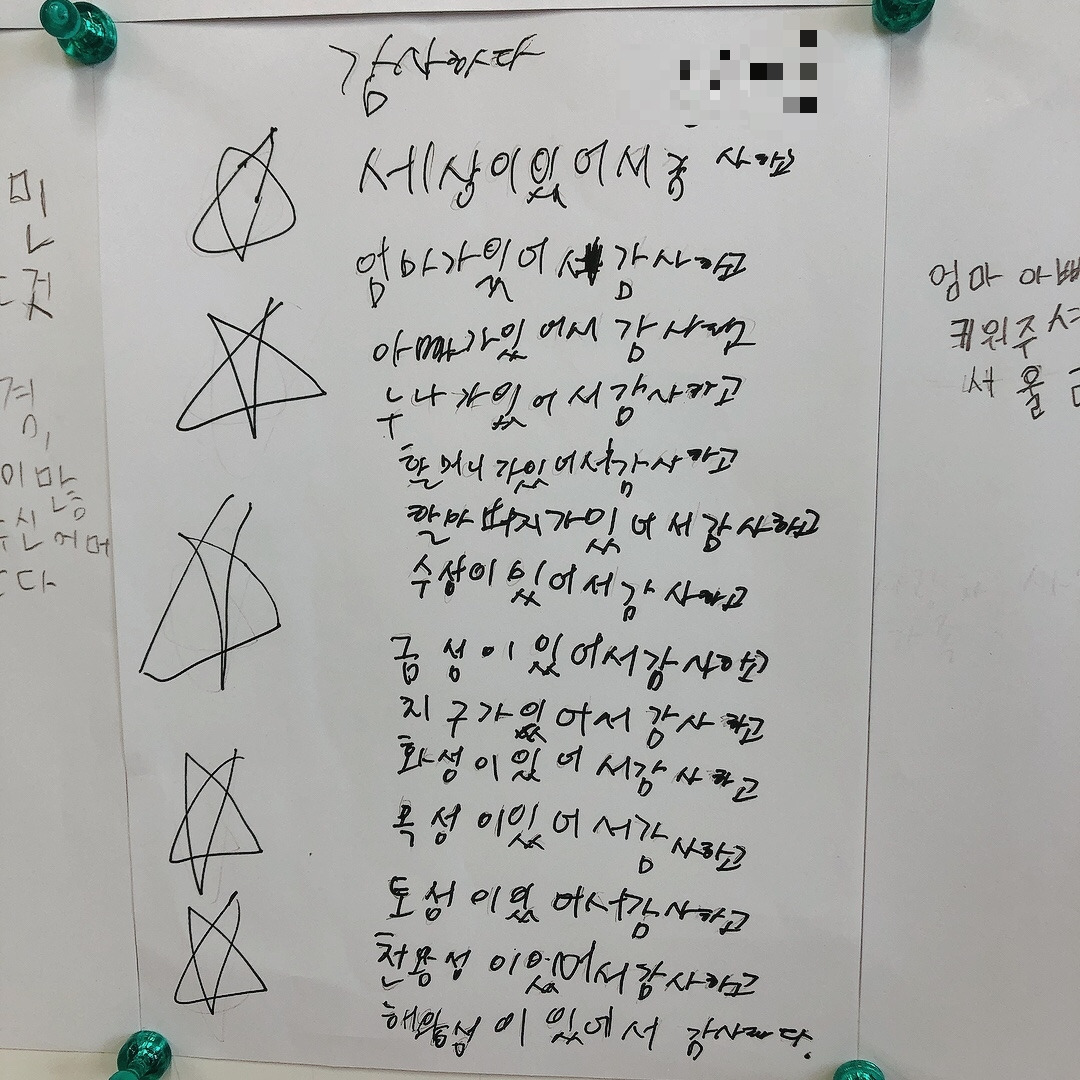 감사하다
세상이있어서 사하고
엄마가있어서 감사하고
아빠가있어서 감사하고
누나가있어서감사하고
할머니가있어서감사하고
할아버지가있어서감사하고
수성이있어서감사하고
금성이있어서감사하고
지구가있어서감사하고
화성이있어서감사하고
목성이있어서감사하고
토성이있어서감사하고
천용성이있어서감사하고
해왕성이있에서 감사하다.
민
것
이많
다
엄마 아빠
키워주셔
서 울